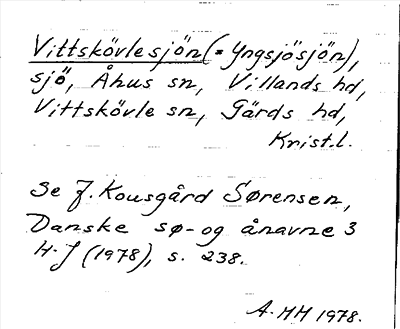 Vittskövlesjön (= Yngsjösjön),
sjö, Åhus sn, Villands hd,
Vittskövle sn, Gärds hd,
Krist.l.
Se J. Kousgård Sørensen,
Danske sø- og ånavne 3
H-J (1978), s. 238.
A. HH 1978.